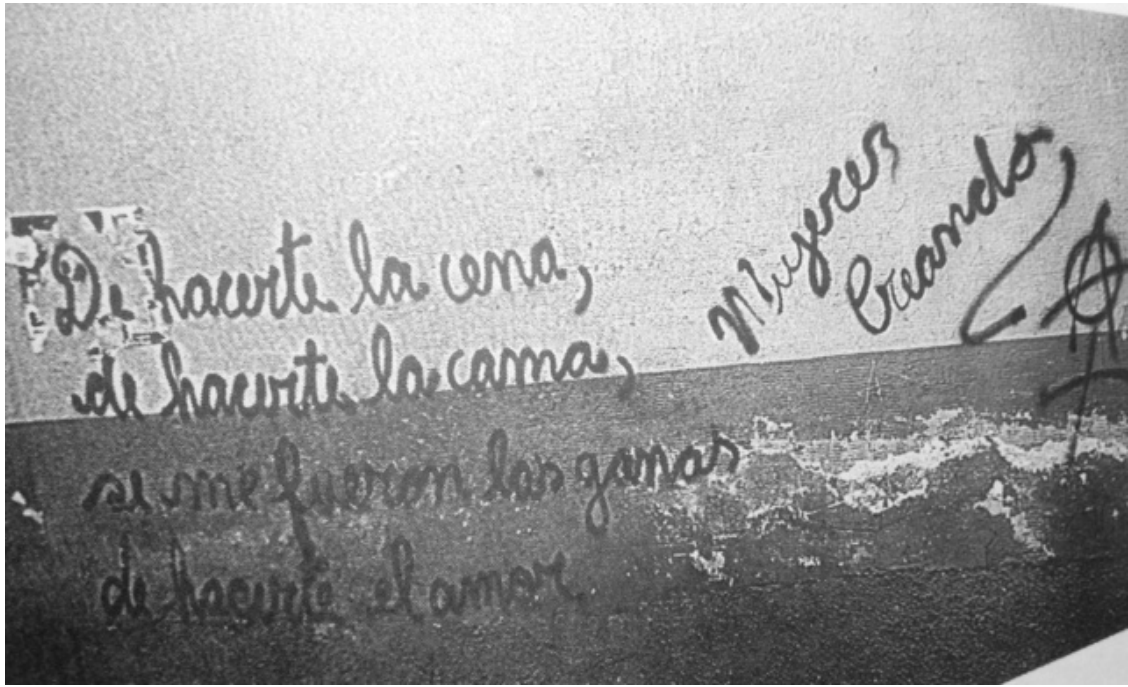 De hacerte la cena,
de hacerte la cama,
se me fueron las ganas
de hacerte el amor
Mujeres
Creando